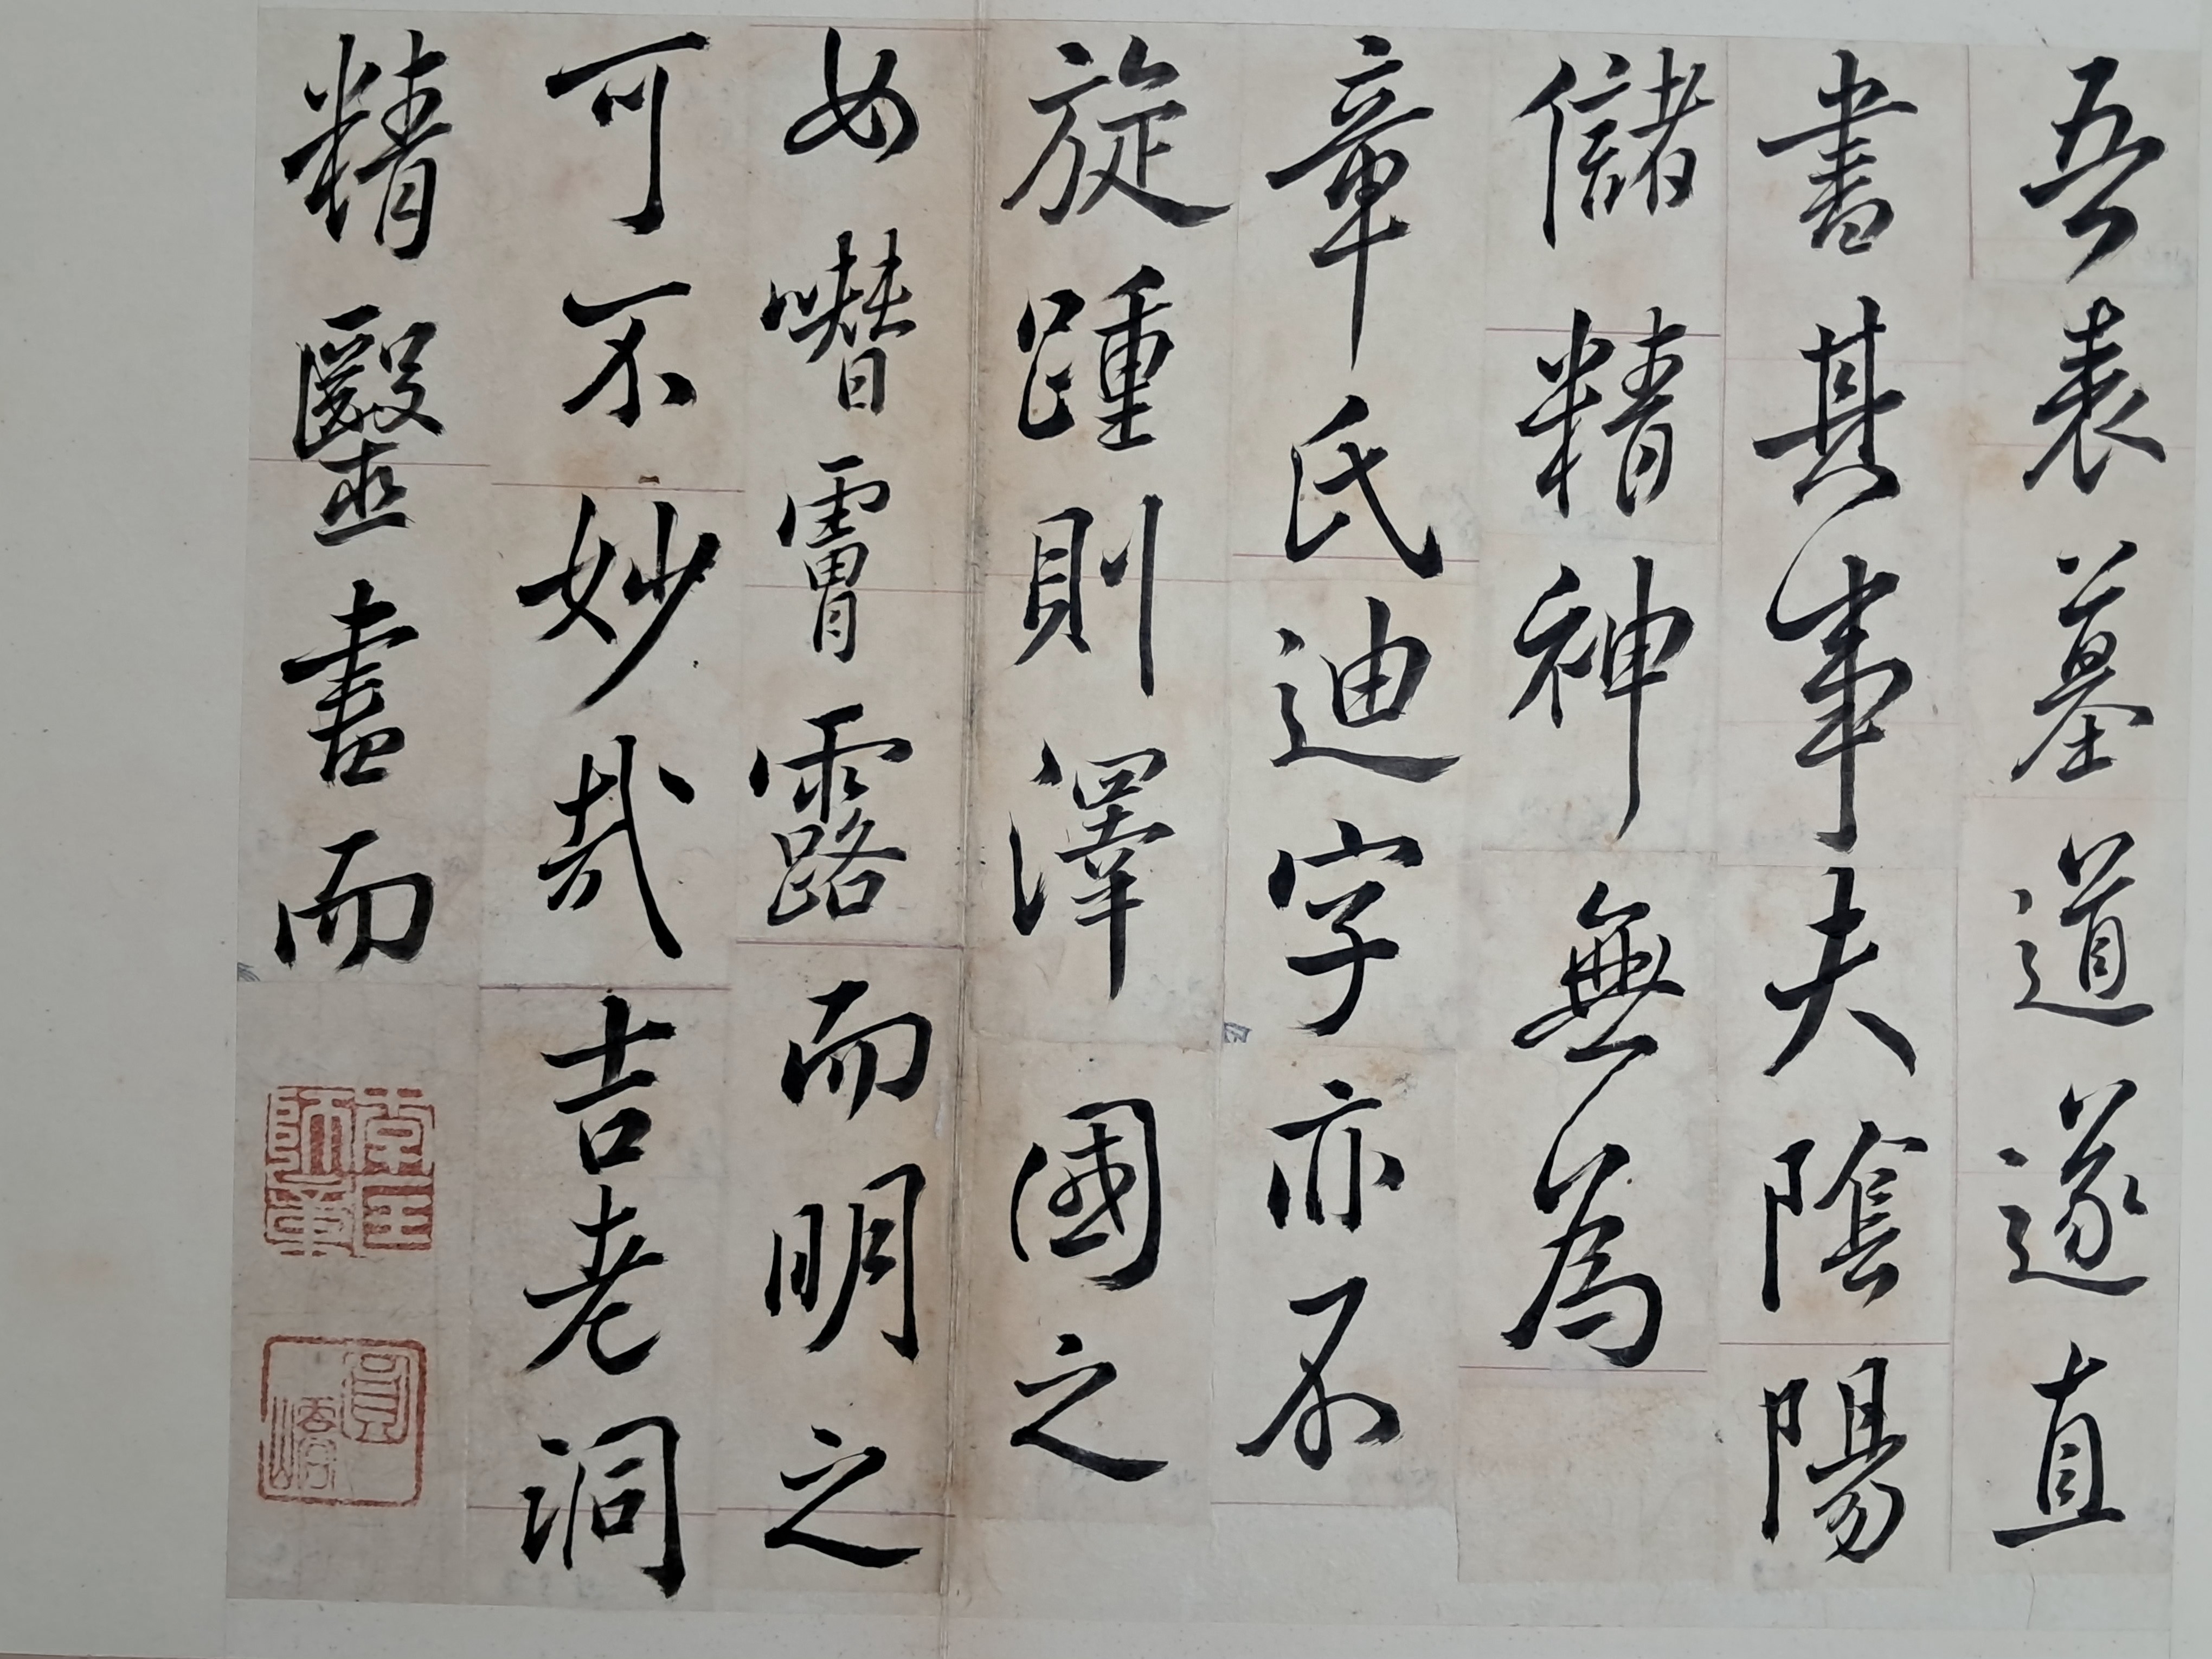 吾表墓道遂直
書其事夫陰陽
儲精神無為
章氏迪字亦不
旋踵則澤國之
女嚌霤露而明之
可不妙哉吉老洞
精毉畫而